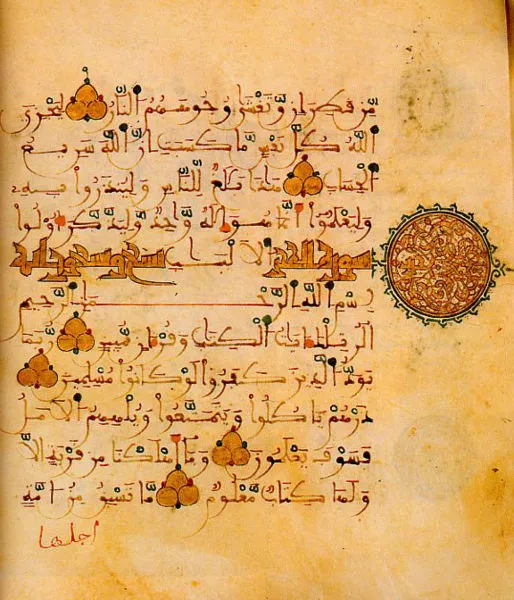 مِّن قَطِرَانٍ وَتَغْشَىٰ وُجُوهَهُمُ النَّارُ لِيَجْزِيَ
اللَّهُ كُلَّ نَفْسٍ مَّا كَسَبَتْ إِنَّ اللَّهَ سَرِيعُ
الْحِسَابِ هَٰذَا بَلَٰغٌ لِّلنَّاسِ وَلِيُنذَرُوا بِهِ
وَلِيَعْلَمُوا أَنَّمَا هُوَ إِلَٰهٌ وَاحِدٌ وَلِيَذَّكَّرَ أُولُوا
سورة الحجر الْأَلْبَابِ تسع وتسعون آية
بِسْمِ اللَّهِ الرَّحْمَٰنِ الرَّحِيمِ
الر تِلْكَ ءَايَاتُ الْكِتَابِ وَقُرْءَانٍ مُّبِينٍ رُّبَمَا
يَوَدُّ الَّذِينَ كَفَرُوا لَوْ كَانُوا مُسْلِمِينَ
ذَرْهُمْ يَأْكُلُوا وَيَتَمَتَّعُوا وَيُلْهِهِمُ الْأَمَلُ
فَسَوْفَ يَعْلَمُونَ وَمَا أَهْلَكْنَا مِن قَرْيَةٍ إِلَّا
وَلَهَا كِتَابٌ مَّعْلُومٌ مَّا تَسْبِقُ مِنْ أُمَّةٍ
اجلها